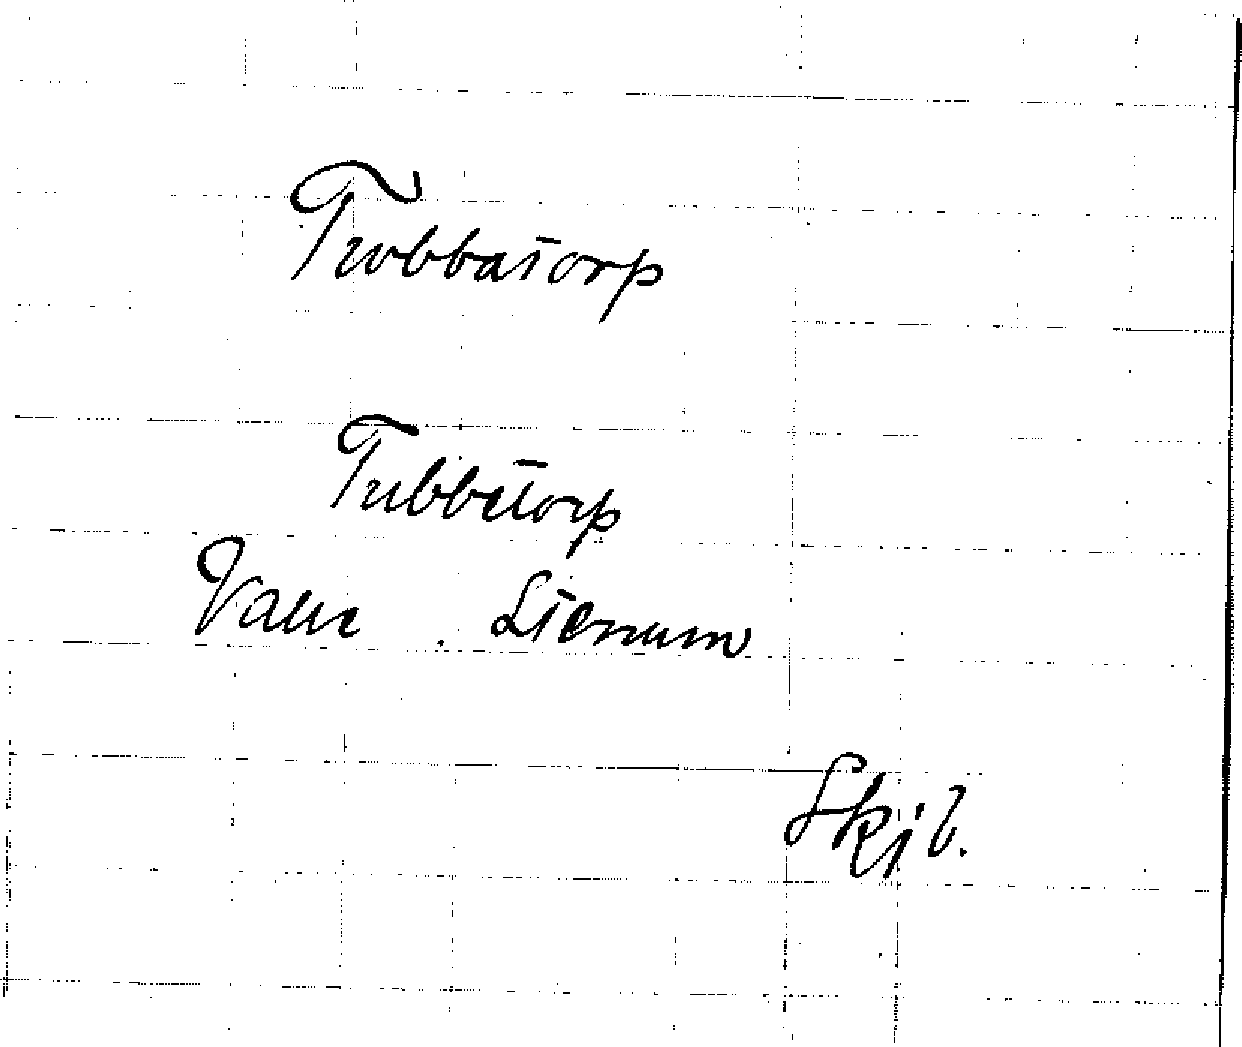 Trobbatorp
Tubbetorp
Valle Stenum
Skjb.